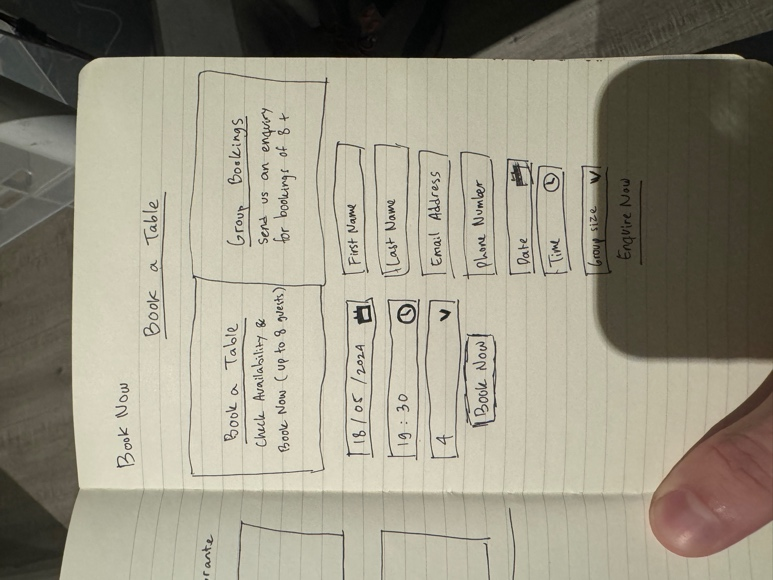 Book Now
Book a Table
Book a Table
Check Availability &
Book Now (up to 8 guests)
18/05/2024
19:30
4
Book Now
Group Bookings
Send us an enquiry
for bookings of 8+
First Name
Last Name
Email Address
Phone Number
Date
Time
Group size
Enquire Now